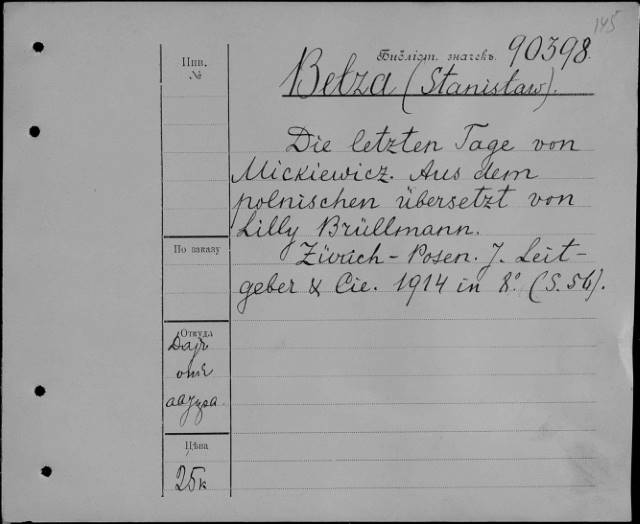 145
Библіот. значекъ. 90398.
Инв. №
Bełza (Stanisław).
Die letzten Tage von
Mickiewicz. Aus dem
polnischen übersetzt von
Lilly Brüllmann.
По заказу
Zürich-Posen. J. Leit-
geber & Cie. 1914 in 8° (S. 56).
Откуда
Даръ
отъ
Цѣна
25к